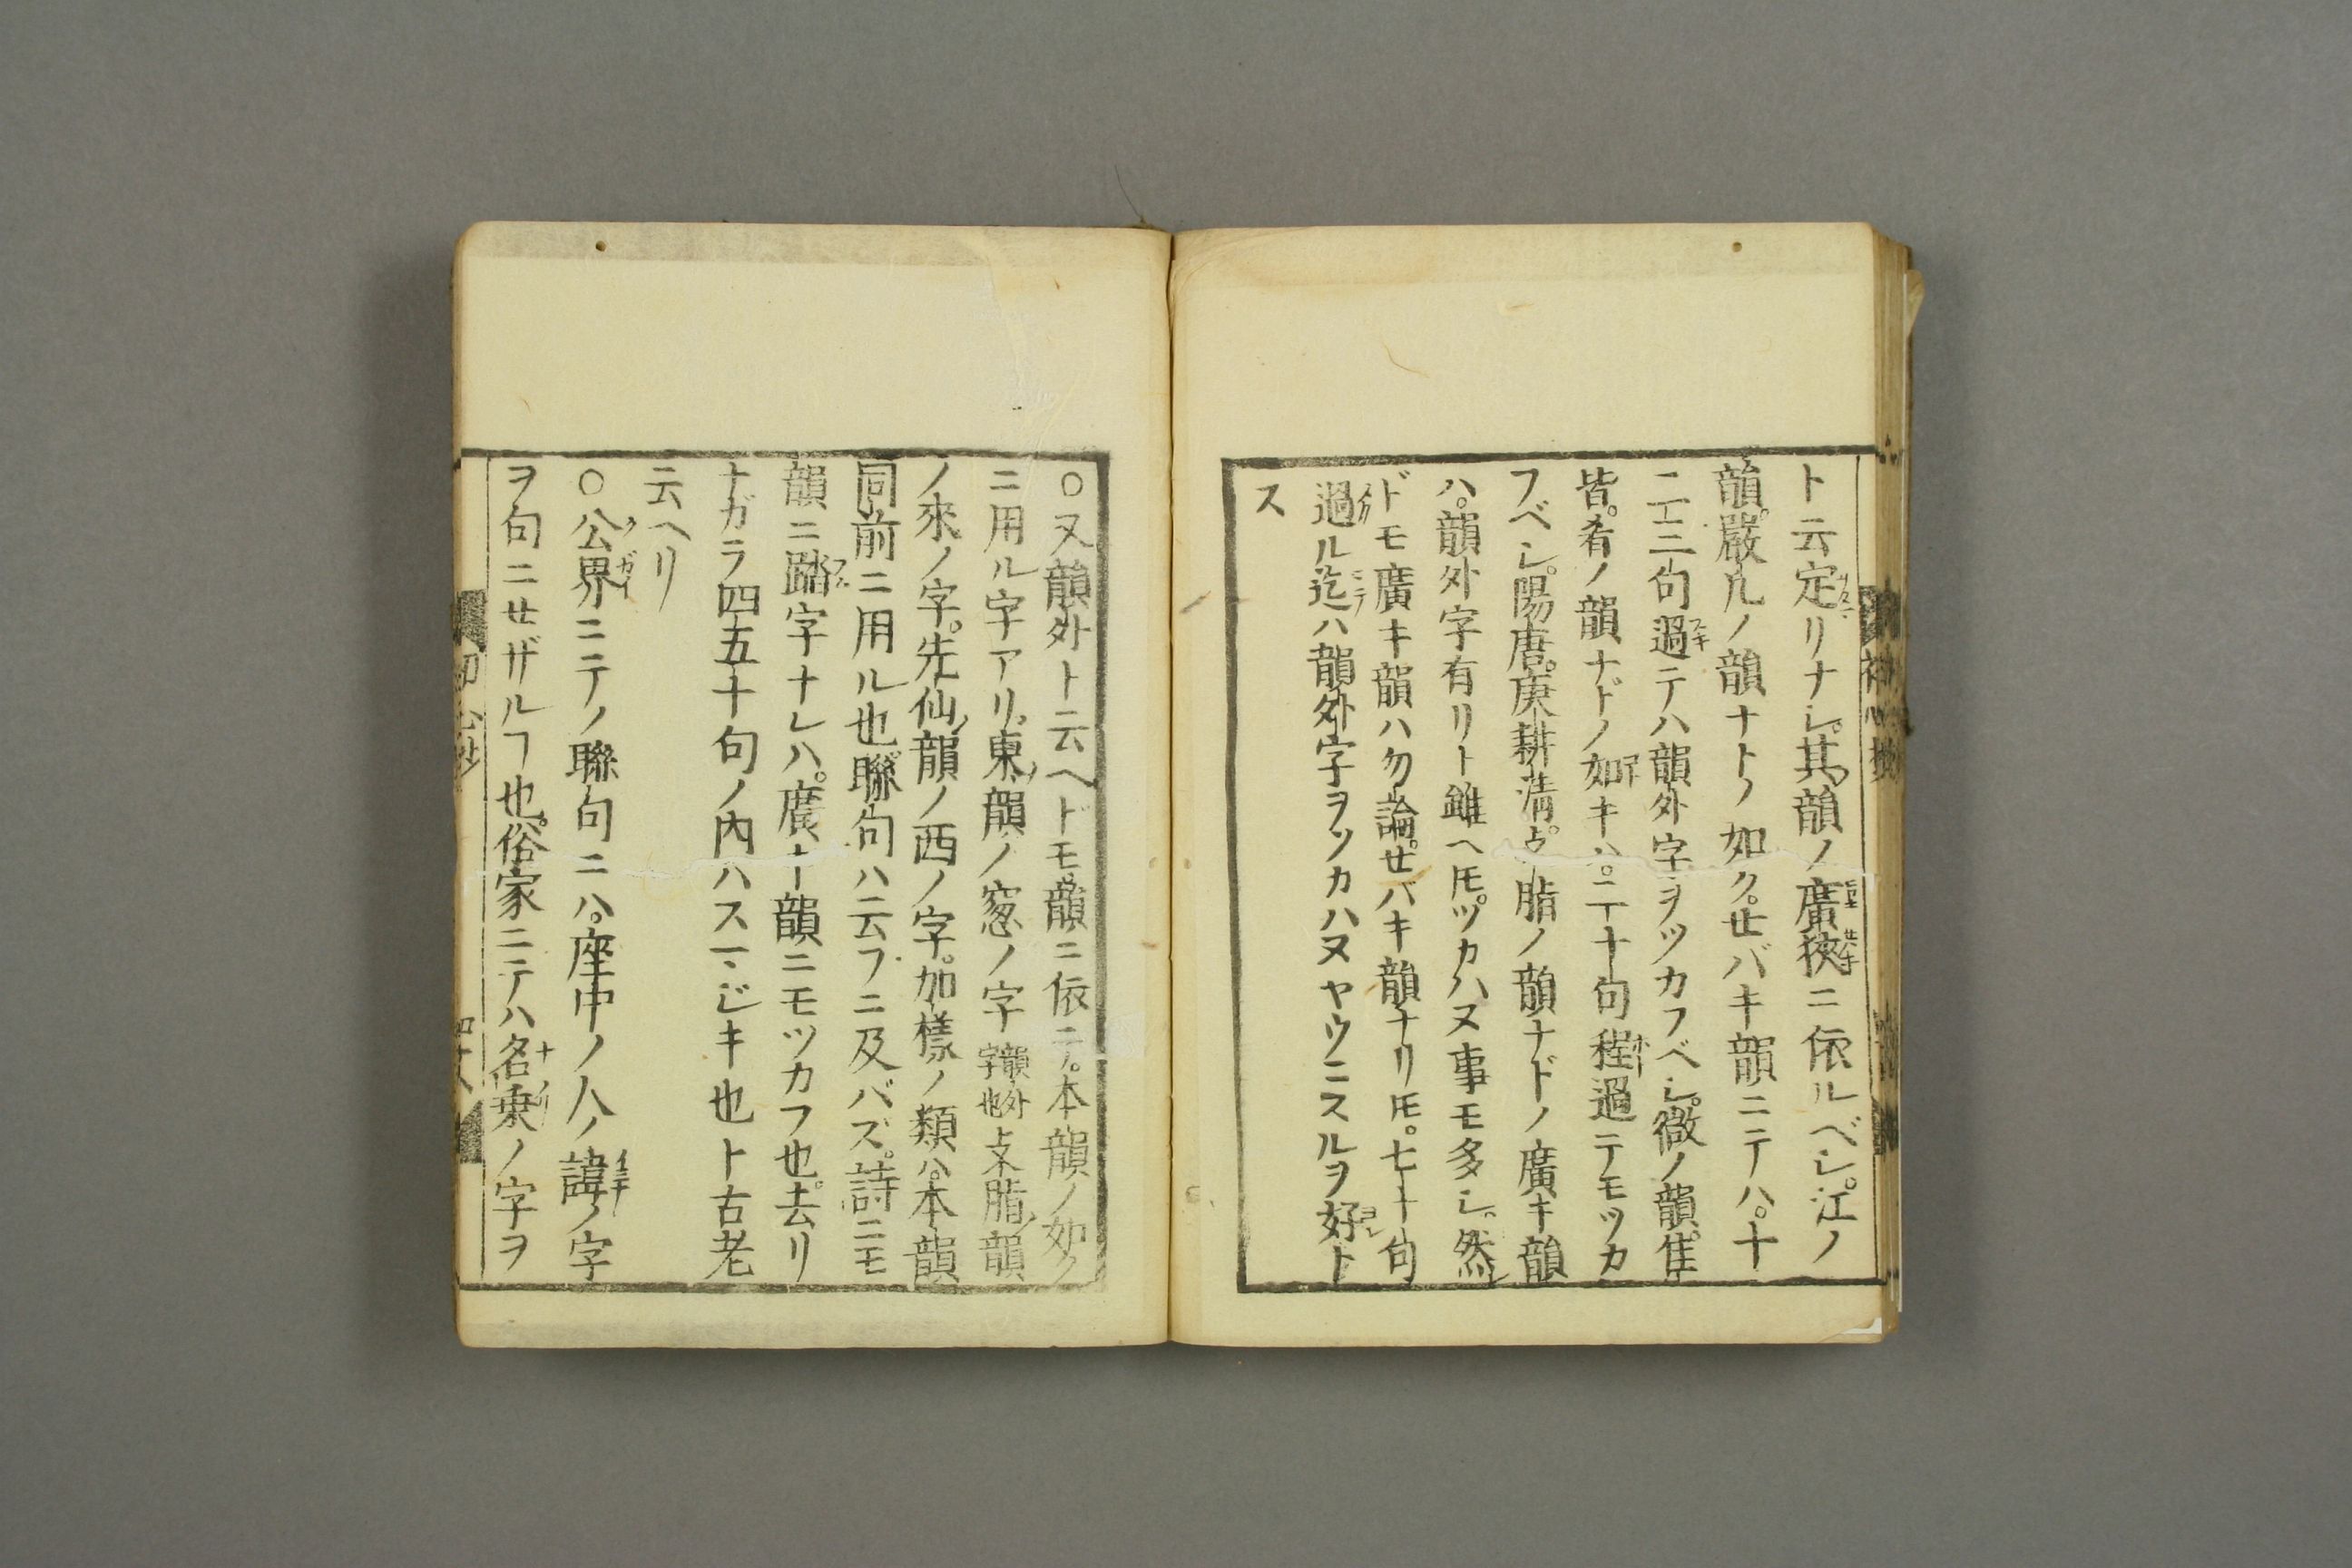 ト云定リナシ。其韻ノ廣狹ニ依ルベシ。江ノ
韻。嚴凡ノ韻ナトノ如ク。せバキ韻ニテハ。十
二三句過テハ韻外字ヲツカフベシ。微ノ韻。佳
皆。肴ノ韻ナドノ如キハ。二十句程過テモツカ
フベシ。陽唐。庚耕清。支脂ノ韻ナドノ廣キ韻
ハ。韻外字有リト雖ヘ𪜈。ツカハヌ事モ多シ。然レ
ドモ廣キ韻ハ勿論。せバキ韻ナリ𪜈。七十句
過ル迄ハ韻外字ヲツカハヌヤウニスルヲ好ト
ス
○又韻外ト云ヘドモ。韻ニ依テ。本韻ノ如ク
ニ用ル字アリ。東ノ韻ノ窓ノ字 韻外字也 支脂ノ韻
ノ來ノ字。先仙ノ韻ノ西ノ字。加樣ノ類ハ。本韻
同前ニ用ル也。聯句ハ云フニ及バズ。詩ニモ
韻ニ踏字ナレハ。廣キ韻ニモツカフ也。去リ
ナガラ四五十句ノ内ハスマジキ也ト古老
云ヘリ
○公界ニテノ聯句ニハ。座中ノ人ノ諱ノ字
ヲ句ニせザルヿ也。俗家ニテハ名乗ノ字ヲ